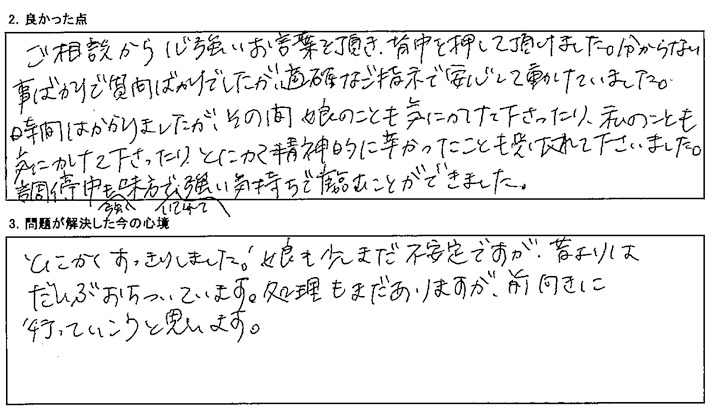 2. 良かった点
ご相談から心強いお言葉を頂き、背中を押して頂けました。分からない
事ばかりで質問ばかりでしたが、適確なご指示で安心して動けていました。
時間はかかりましたが、その間娘のことも気にかけて下さったり、私のことも
気にかけて下さったり、とにかく精神的に辛かったことも受け入れて下さいました。
調停中も味方で強い気持ちで臨むことができました。
心強く いてくれて
3. 問題が解決した今の心境
とにかくすっきりしました。娘も少しまだ不安定ですが、昔よりは
だいぶおちついています。処理もまだありますが、前向きに
行っていこうと思います。